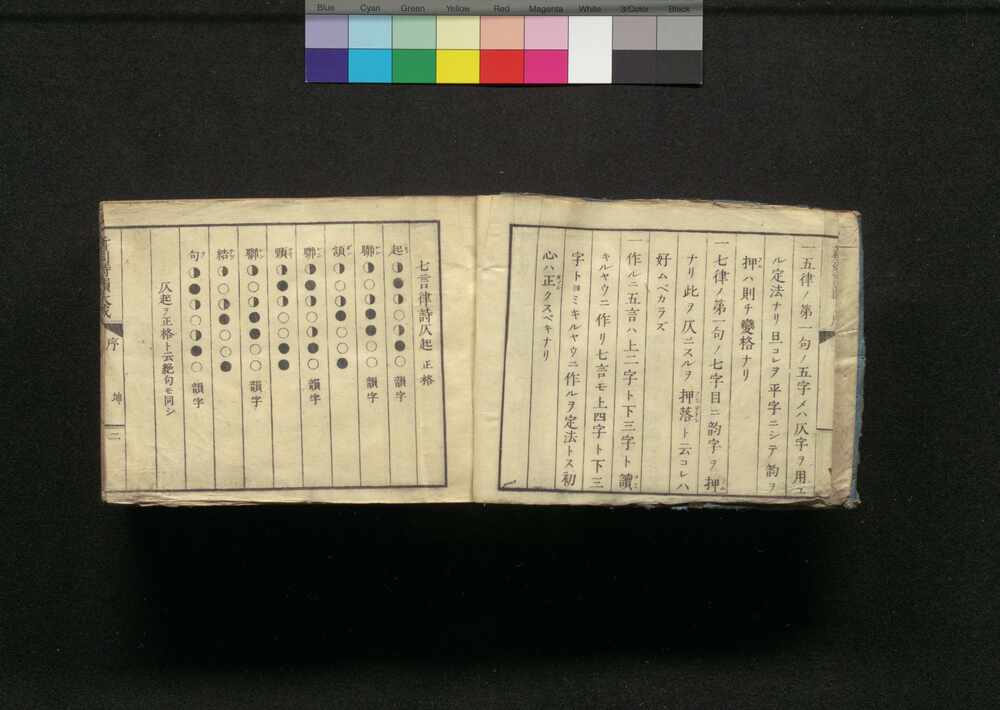 Blue Cyan Green Yellow Red Magenta White 3/Color Black
一五律ノ第一句ノ五字メハ仄字ヲ用ユ
ル定法ナリ旦コレヲ平字ニシテ韵ヲ
押ハ則チ變格ナリ
一七律ノ第一句ノ七字目ニ韵字ヲ押
ナリ此ヲ仄ニスルヲ押落ト云コレハ
好ムベカラズ
一作ルニ五言ハ上二字ト下三字ト讀
キルヤウニ作リ七言モ上四字ト下三
字トヨミキルヤウニ作ルヲ定法トス初
心ハ正クスベキナリ
七言律詩仄起 正格
起◑●◑○◑●○韻字
聯◑○◑●●○○韻字
頷◑○◑●○○●
聯◑●◑○●●○韻字
頸◑●◑○○●●
聯◑○◑●●○○韻字
結◑○◑●○○●
句◑●◑○◑●○韻字
仄起ヲ正格ト云絶句モ同シ
序
坤
二